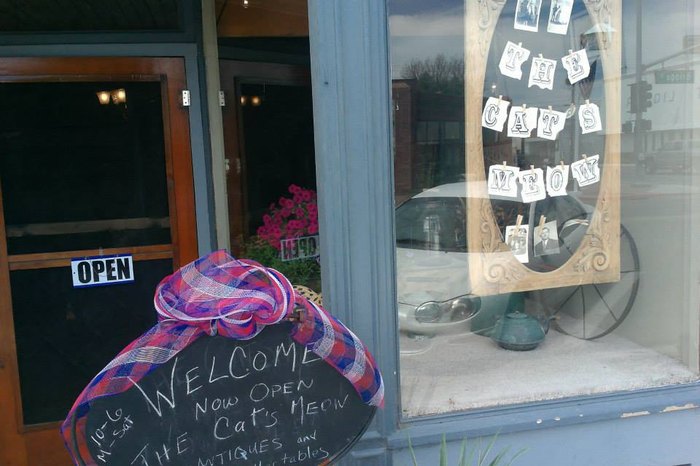 THE
CATS
MEOW
OPEN
OPEN
WELCOME
NOW OPEN
THE Cat's MEOW
ANTIQUES and
10-6
M-SAT